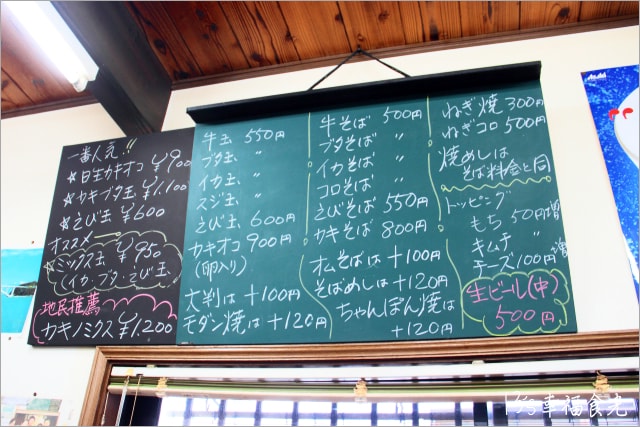 一番人気!!
☆日生カキオコ ¥900
☆カキブタ玉 ¥1,100
☆えび玉 ¥600
オススメ
ミックス玉 ¥950
(イカ、ブタ、えび玉)
地民推薦
カキノミクス ¥1,200
牛玉 550円
ブタ玉 〃
イカ玉 〃
スジ玉 〃
えび玉 600円
カキオコ 900円
(卵入り)
大判は +100円
モダン焼は +120円
牛そば 500円
ブタそば 〃
イカそば 〃
コロそば 〃
えびそば 550円
カキそば 800円
オムそばは +100円
そばめしは +120円
ちゃんぽん焼は
+120円
ねぎ焼 300円
ねぎコロ 500円
焼めしは
そば料金と同
トッピング
もち 50円増
キムチ 〃
チーズ 100円増
生ビール(中)
500円
Asahi
幸福食光